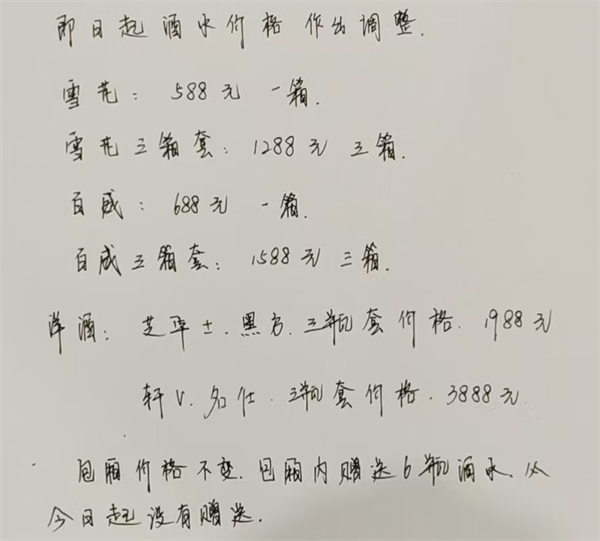 即日起酒水价格作出调整.
雪花: 588元 一箱.
雪花三箱套: 1288元 三箱.
百威: 688元 一箱.
百威三箱套: 1588元 三箱.
洋酒: 芝华士.黑方.三瓶套价格.1988元
轩V.名仕.三瓶套价格.3888元
包厢价格不变.包厢内赠送6瓶酒水.从
今日起没有赠送.